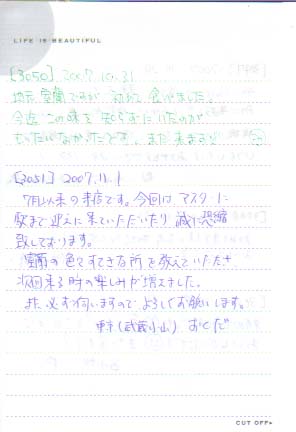 LIFE IS BEAUTIFUL
[3050] 2007.10.31
地元室蘭ですが、初めて食べました。
今迄この味を知らずにいたのが
もったいなかったです。また来ます♡
[3051] 2007.11.1
7月以来の来店です。今回はマスターに
駅まで迎えに来ていただいたり 誠に恐縮
致しております。
室蘭の色々すてきな所を教えていただき
次回来る時の楽しみが増えました。
また必ず伺いますのでよろしくお願いします。
東京(武蔵小山) おくだ
CUT OFF▸